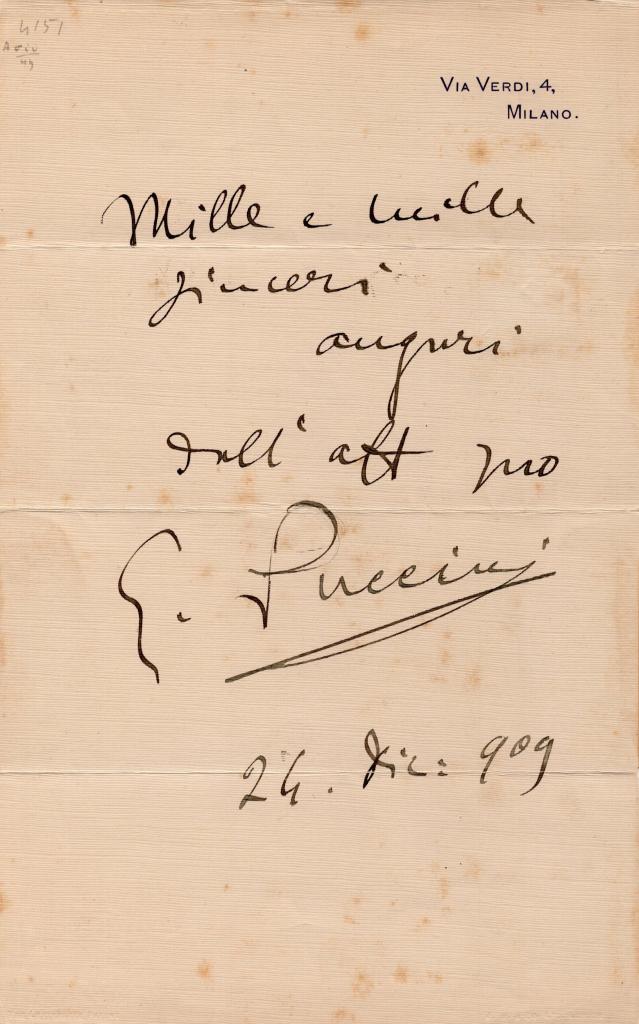 4151
Via Verdi, 4,
Milano.
Mille e mille
sinceri
auguri
dall' aff suo
G. Puccini
24. Dic: 909